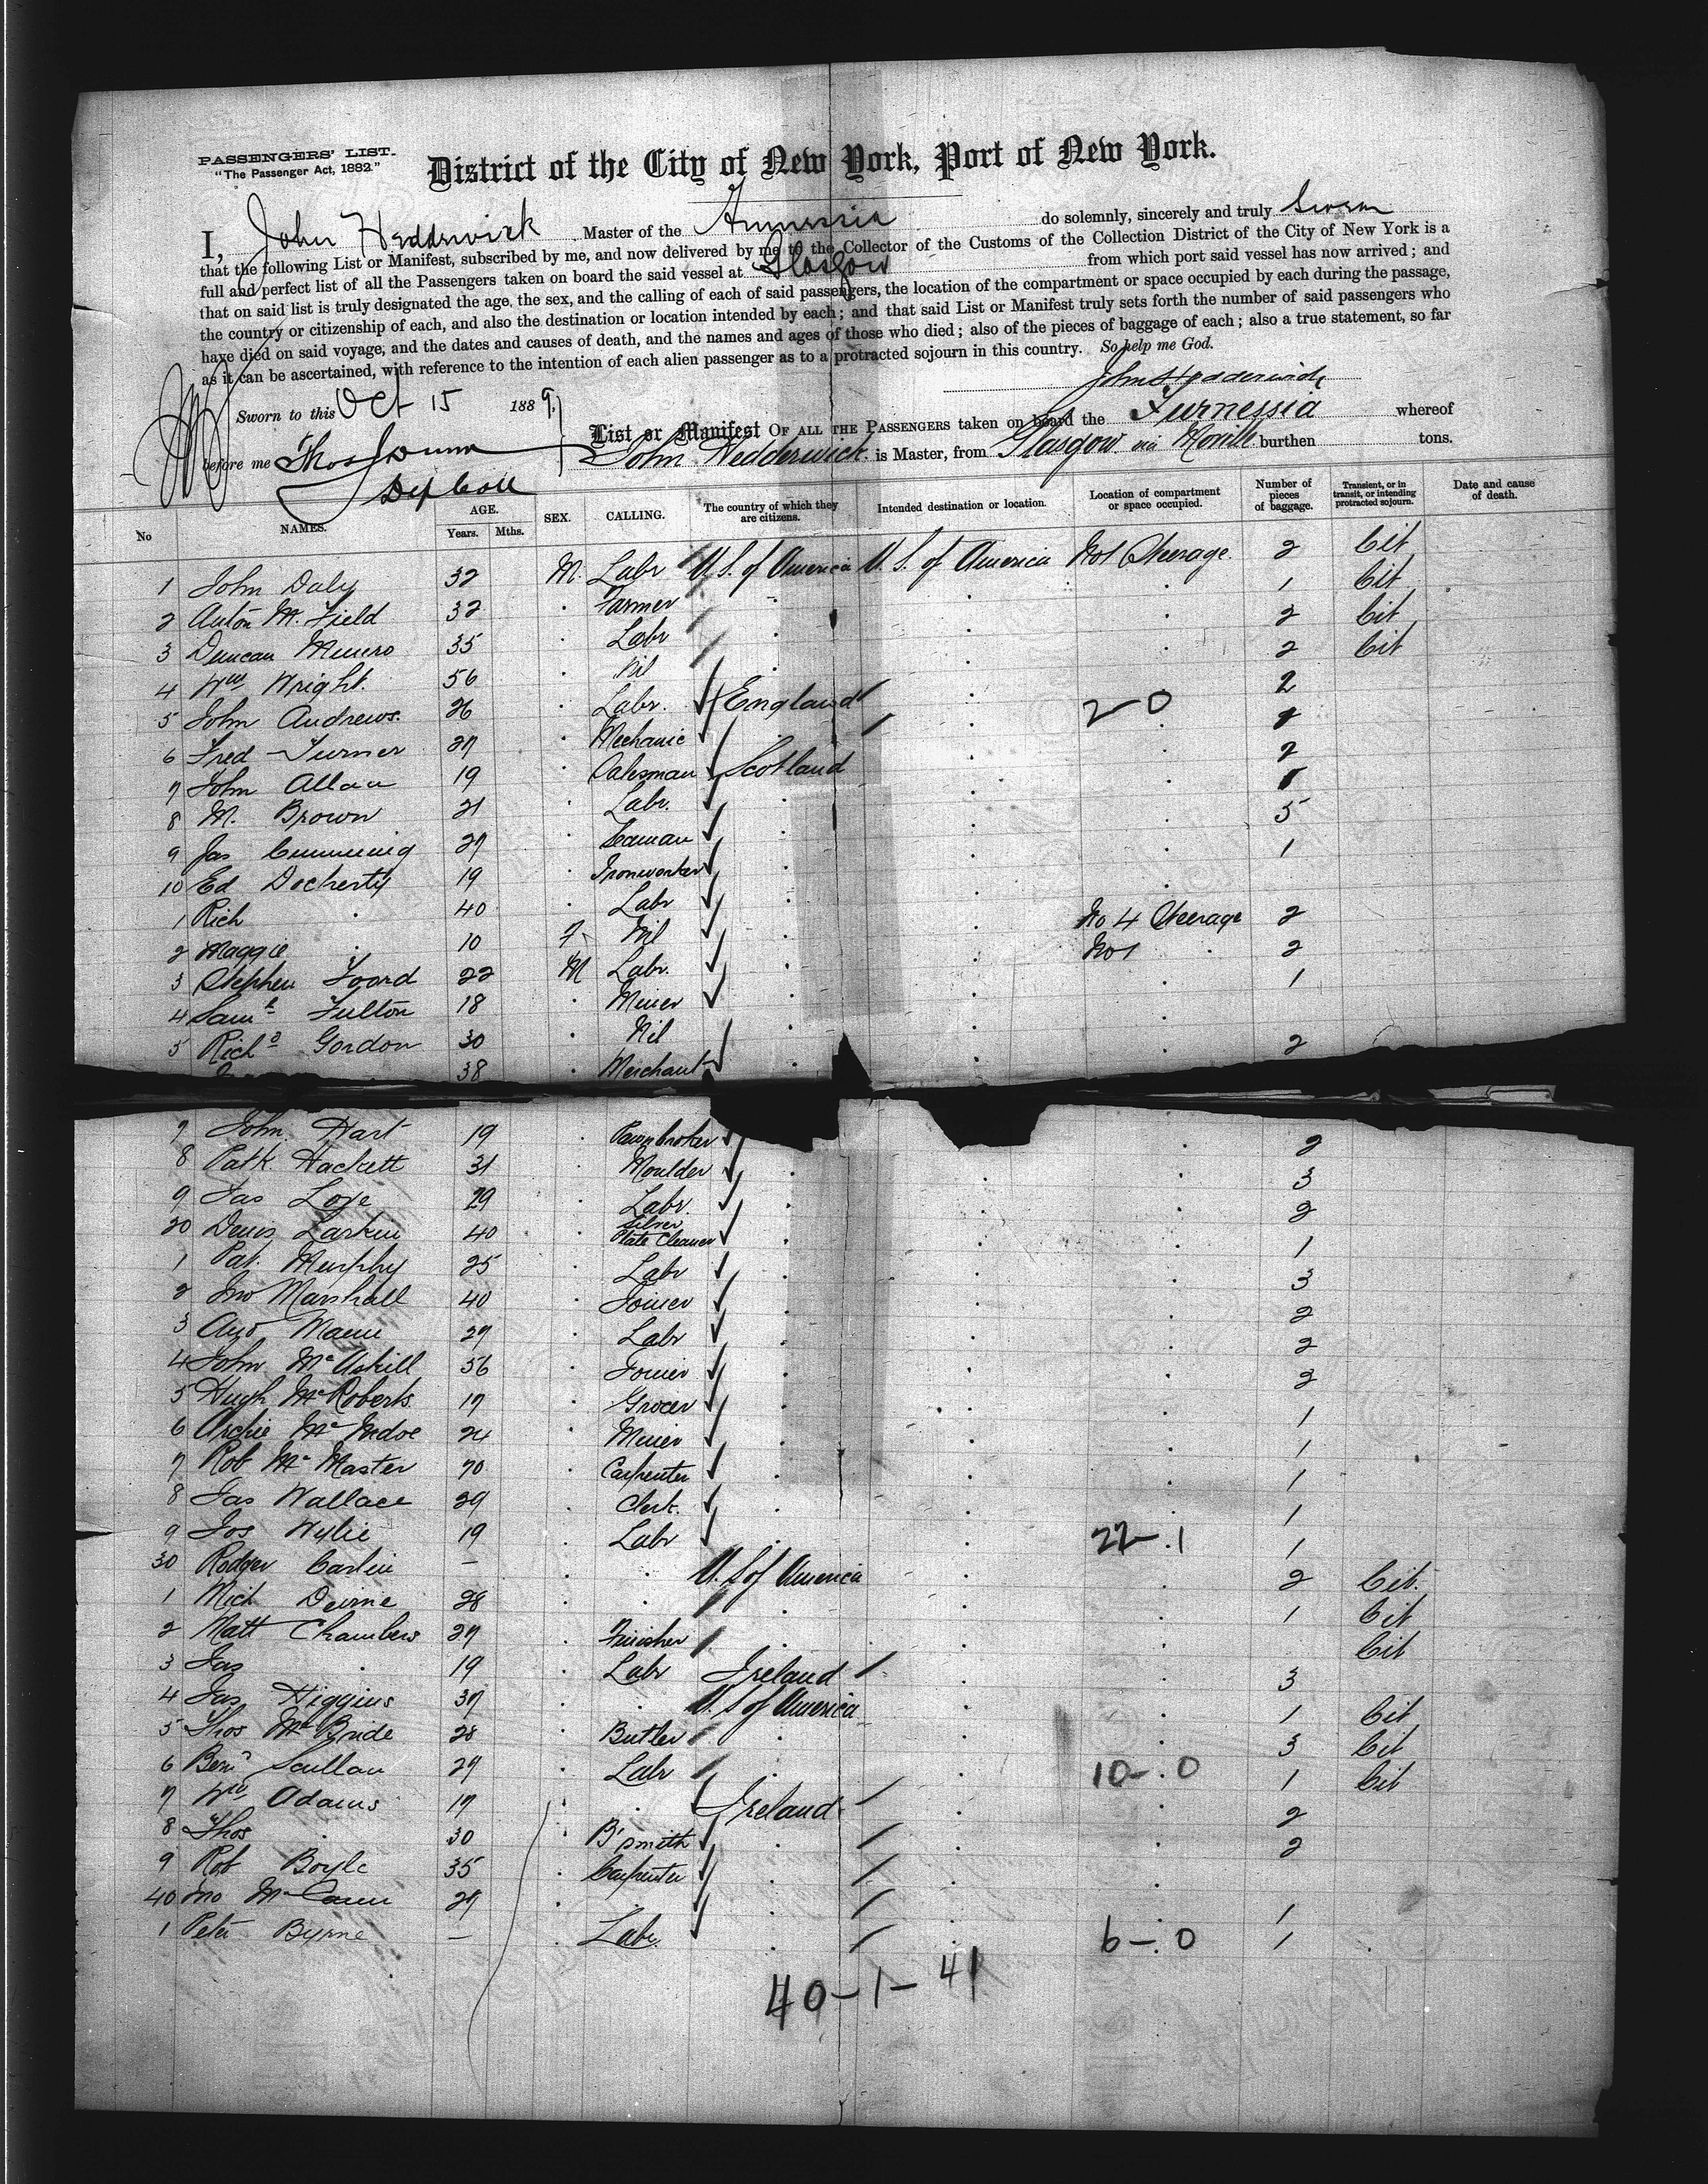 PASSENGERS' LIST.
"The Passenger Act, 1882."
District of the City of New York, Port of New York.
I, John Hedderwick Master of the Furnessia do solemnly, sincerely and truly Swear
that the following List or Manifest, subscribed by me, and now delivered by me to the Collector of the Customs of the Collection District of the City of New York is a
full and perfect list of all the Passengers taken on board the said vessel at Glasgow from which port said vessel has now arrived; and
that on said list is truly designated the age, the sex, and the calling of each of said passengers, the location of the compartment or space occupied by each during the passage,
the country or citizenship of each, and also the destination or location intended by each; and that said List or Manifest truly sets forth the number of said passengers who
have died on said voyage, and the dates and causes of death, and the names and ages of those who died; also of the pieces of baggage of each; also a true statement, so far
as it can be ascertained, with reference to the intention of each alien passenger as to a protracted sojourn in this country. So help me God.
John Hedderwick
Sworn to this Oct 15 1889
before me Thos Dunn
Dep Coll
List or Manifest OF ALL THE PASSENGERS taken on board the Furnessia whereof
John Hedderwick is Master, from Glasgow via Moville burthen tons.
No NAMES. AGE. Years. Mths. SEX. CALLING. The country of which they are citizens. Intended destination or location. Location of compartment or space occupied. Number of pieces of baggage. Transient, or in transit, or intending protracted sojourn. Date and cause of death.
1 John Daly 32 M. Labr U.S. of America U.S. of America No 1 Steerage. 2 Cit
2 M. Field 32 Farmer 1 Cit
3 Duncan Munro 35 Labr 2 Cit
4 Wm Wright. 56 Nil 2 Cit
5 John Andrews. 26 Labr. England 2 2-0
6 Fred Turner 27 Mechanic
7 John Allan 19 Salesman Scotland 2
8 M. Brown 21 Labr. 1
9 Jas Cumming 27 Seaman 5
10 Ed Docherty 19 Ironworker 1
1 Rich 40 Labr
2 Maggie 10 F. Nil No 4 Steerage 2
3 Stephen Foord 22 M Labr. No 1 2
4 Saml Fulton 18 Miner 1
5 Richd Gordon 30 Nil
38 Merchant 2
7 John Hart 19 Pawnbroker 2
8 Patk Hackett 31 Moulder 3
9 Jas Love 29 Labr. 2
20 Denis Larkin 40 Silver Plate Cleaner 1
1 Pat. Murphy 25 Labr 3
2 Jno Marshall 40 Joiner 2
3 And Mann 27 Labr 2
4 John McAskill 56 Joiner 2
5 Hugh McRoberts. 17 Grocer 1
6 Archie 24 Miner 1
7 Rob McMaster 70 Carpenter 1
8 Jas Wallace 29 Clerk. 1
9 Jos Wylie 19 Labr 22-1 1
30 Rodger Carlin — U.S of America 2 Cit.
1 Mich Deirne 28 1 Cit
2 Matt Chambers 27 Finisher Cit
3 Jas 19 Labr Ireland 3
4 Jas Higgins 37 U.S of America 1 Cit
5 Thos McBride 28 Butler 3 Cit
6 Benn Scullan 29 Labr 10-0 1 Cit
7 Wm Adams 17 Ireland 2
8 Thos 30 B'smith 2
9 Rob Boyle 35 Carpenter
40 Jno McCann 27 1
1 Peter Byrne — Labr. 6-0 1
40-1-41